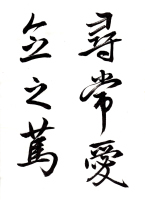 尋常愛
念之篤